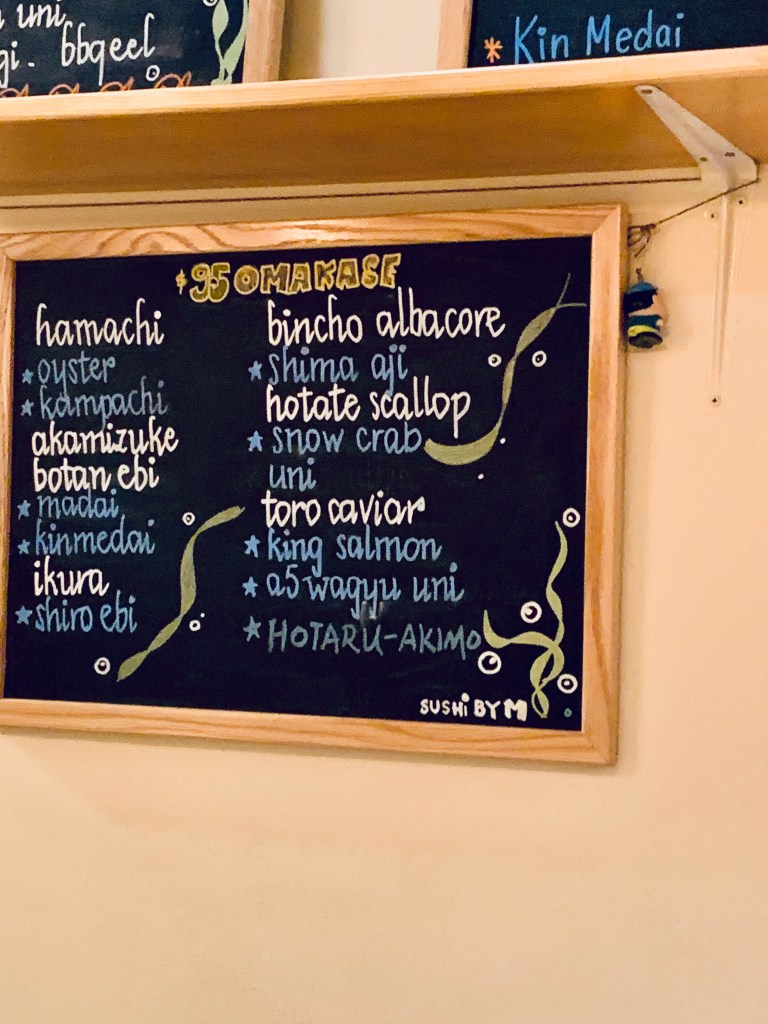 uni
gi. bbqeel
* Kin Medai
$95 OMAKASE
hamachi
* oyster
* kampachi
akamizuke
botan ebi
* madai
* kinmedai
ikura
* shiro ebi
bincho albacore
* shima aji
hotate scallop
* snow crab
uni
toro caviar
* king salmon
* a5 wagyu uni
* HOTARU-AKIMO
SUSHI BY M